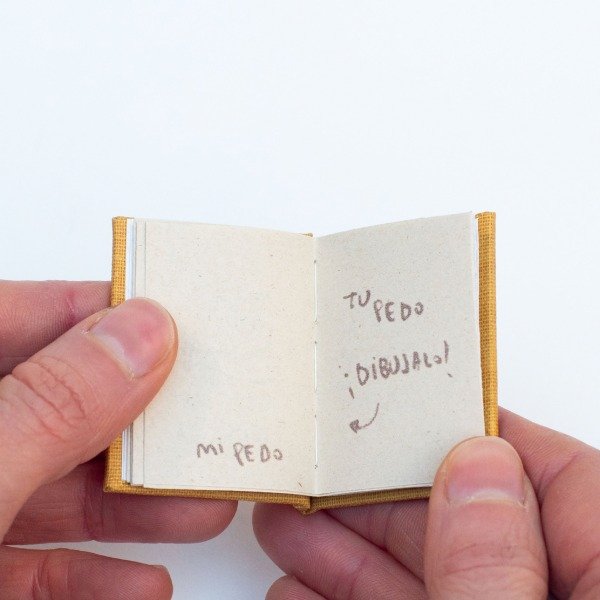 mi PEDO
TU PEDO
¡DIBUJALO!